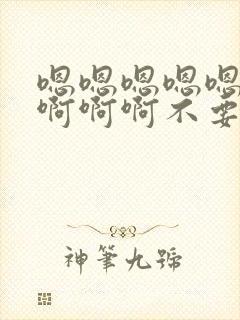 嗯嗯嗯嗯嗯
啊啊啊不要
神筆九號